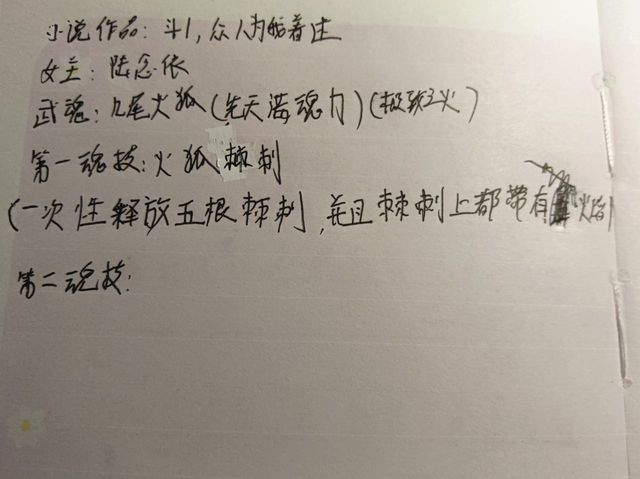 小说作品：斗1，众人内皓着迷
女主：陆念依
武魂：九尾火狐（先天满魂力）（极致之火）
第一魂技：火狐棘刺
（一次性释放五根棘刺，并且棘刺上都带有火焰）
第二魂技：